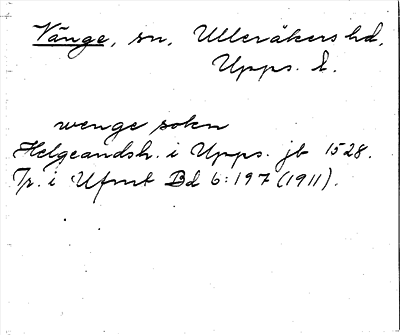 Vänge, sn, Ulleråkers hd,
Upps. l.
wenge sokn
Helgeandsh. i Upps. jb 1528.
Tr. i Ufmt Bd 6:197 (1911).